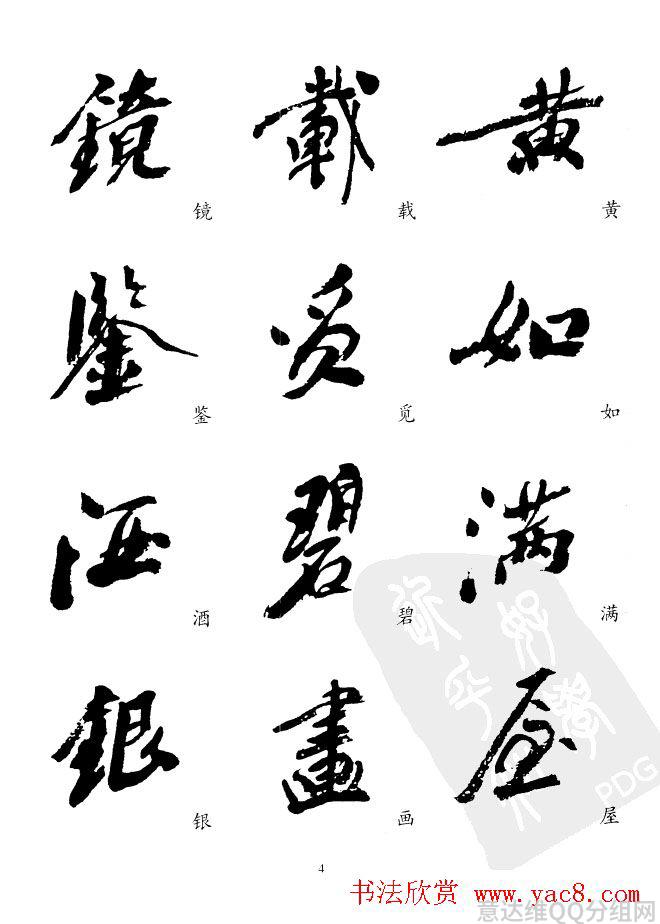 鏡 載 黄
镜 载 黄
鑒 觅 如
鉴 觅 如
酒 碧 满
酒 碧 满
銀 畫 屋
银 画 屋
PDG
4
书法欣赏 www.yac8.com
意达维QQ分组网